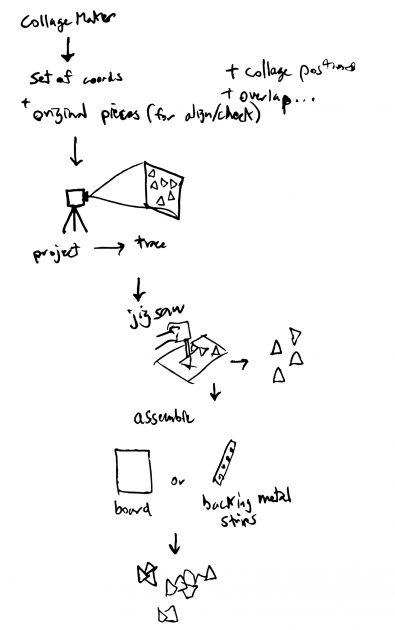 Collage Maker
set of coords
+ collage positions
+ original pieces (for align/check)
+ overlap...
project → trace
jigsaw
assemble
board
or
backing metal
strips